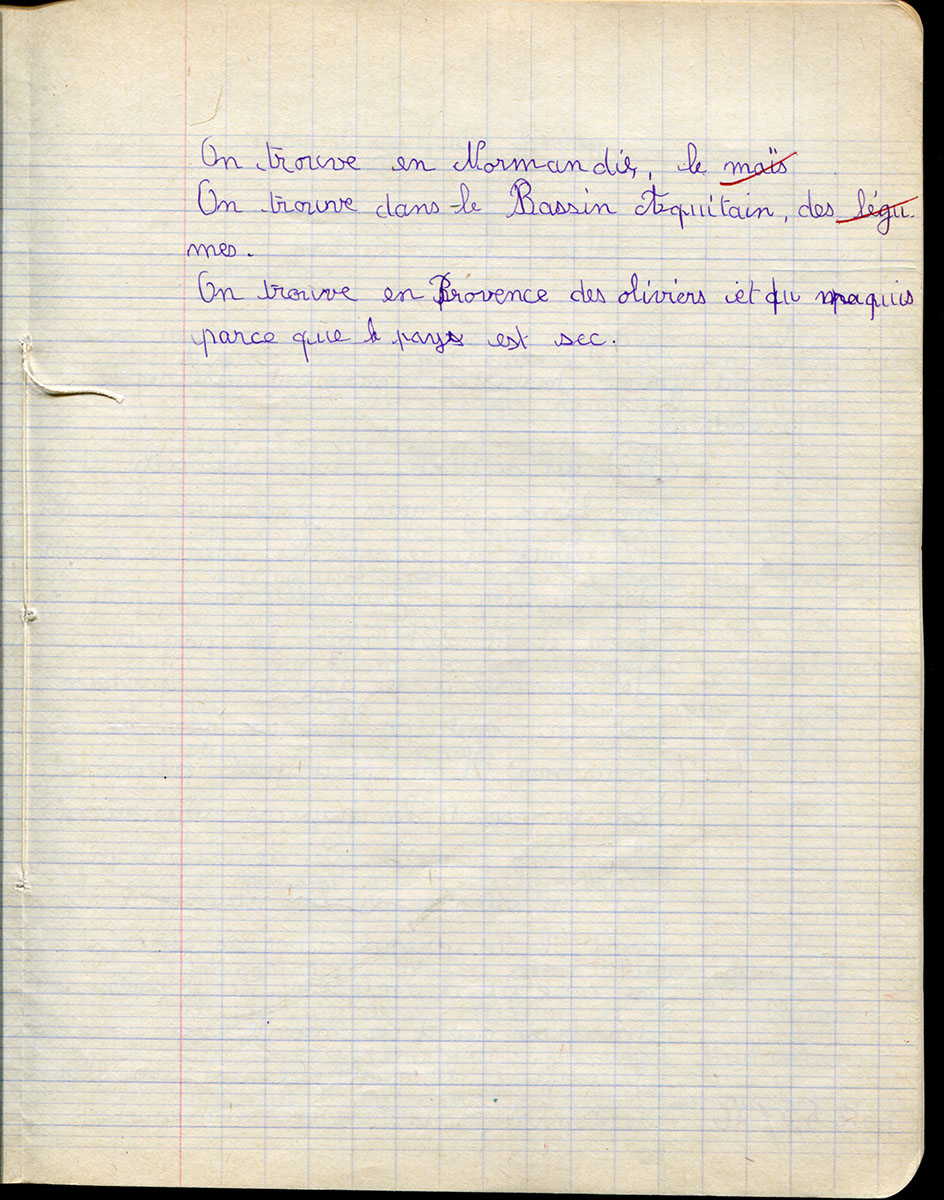 On trouve en Normandie, le maïs
On trouve dans le Bassin Aquitain, des légu-
mes.
On trouve en Provence des oliviers et du maquis
parce que le pays est sec.